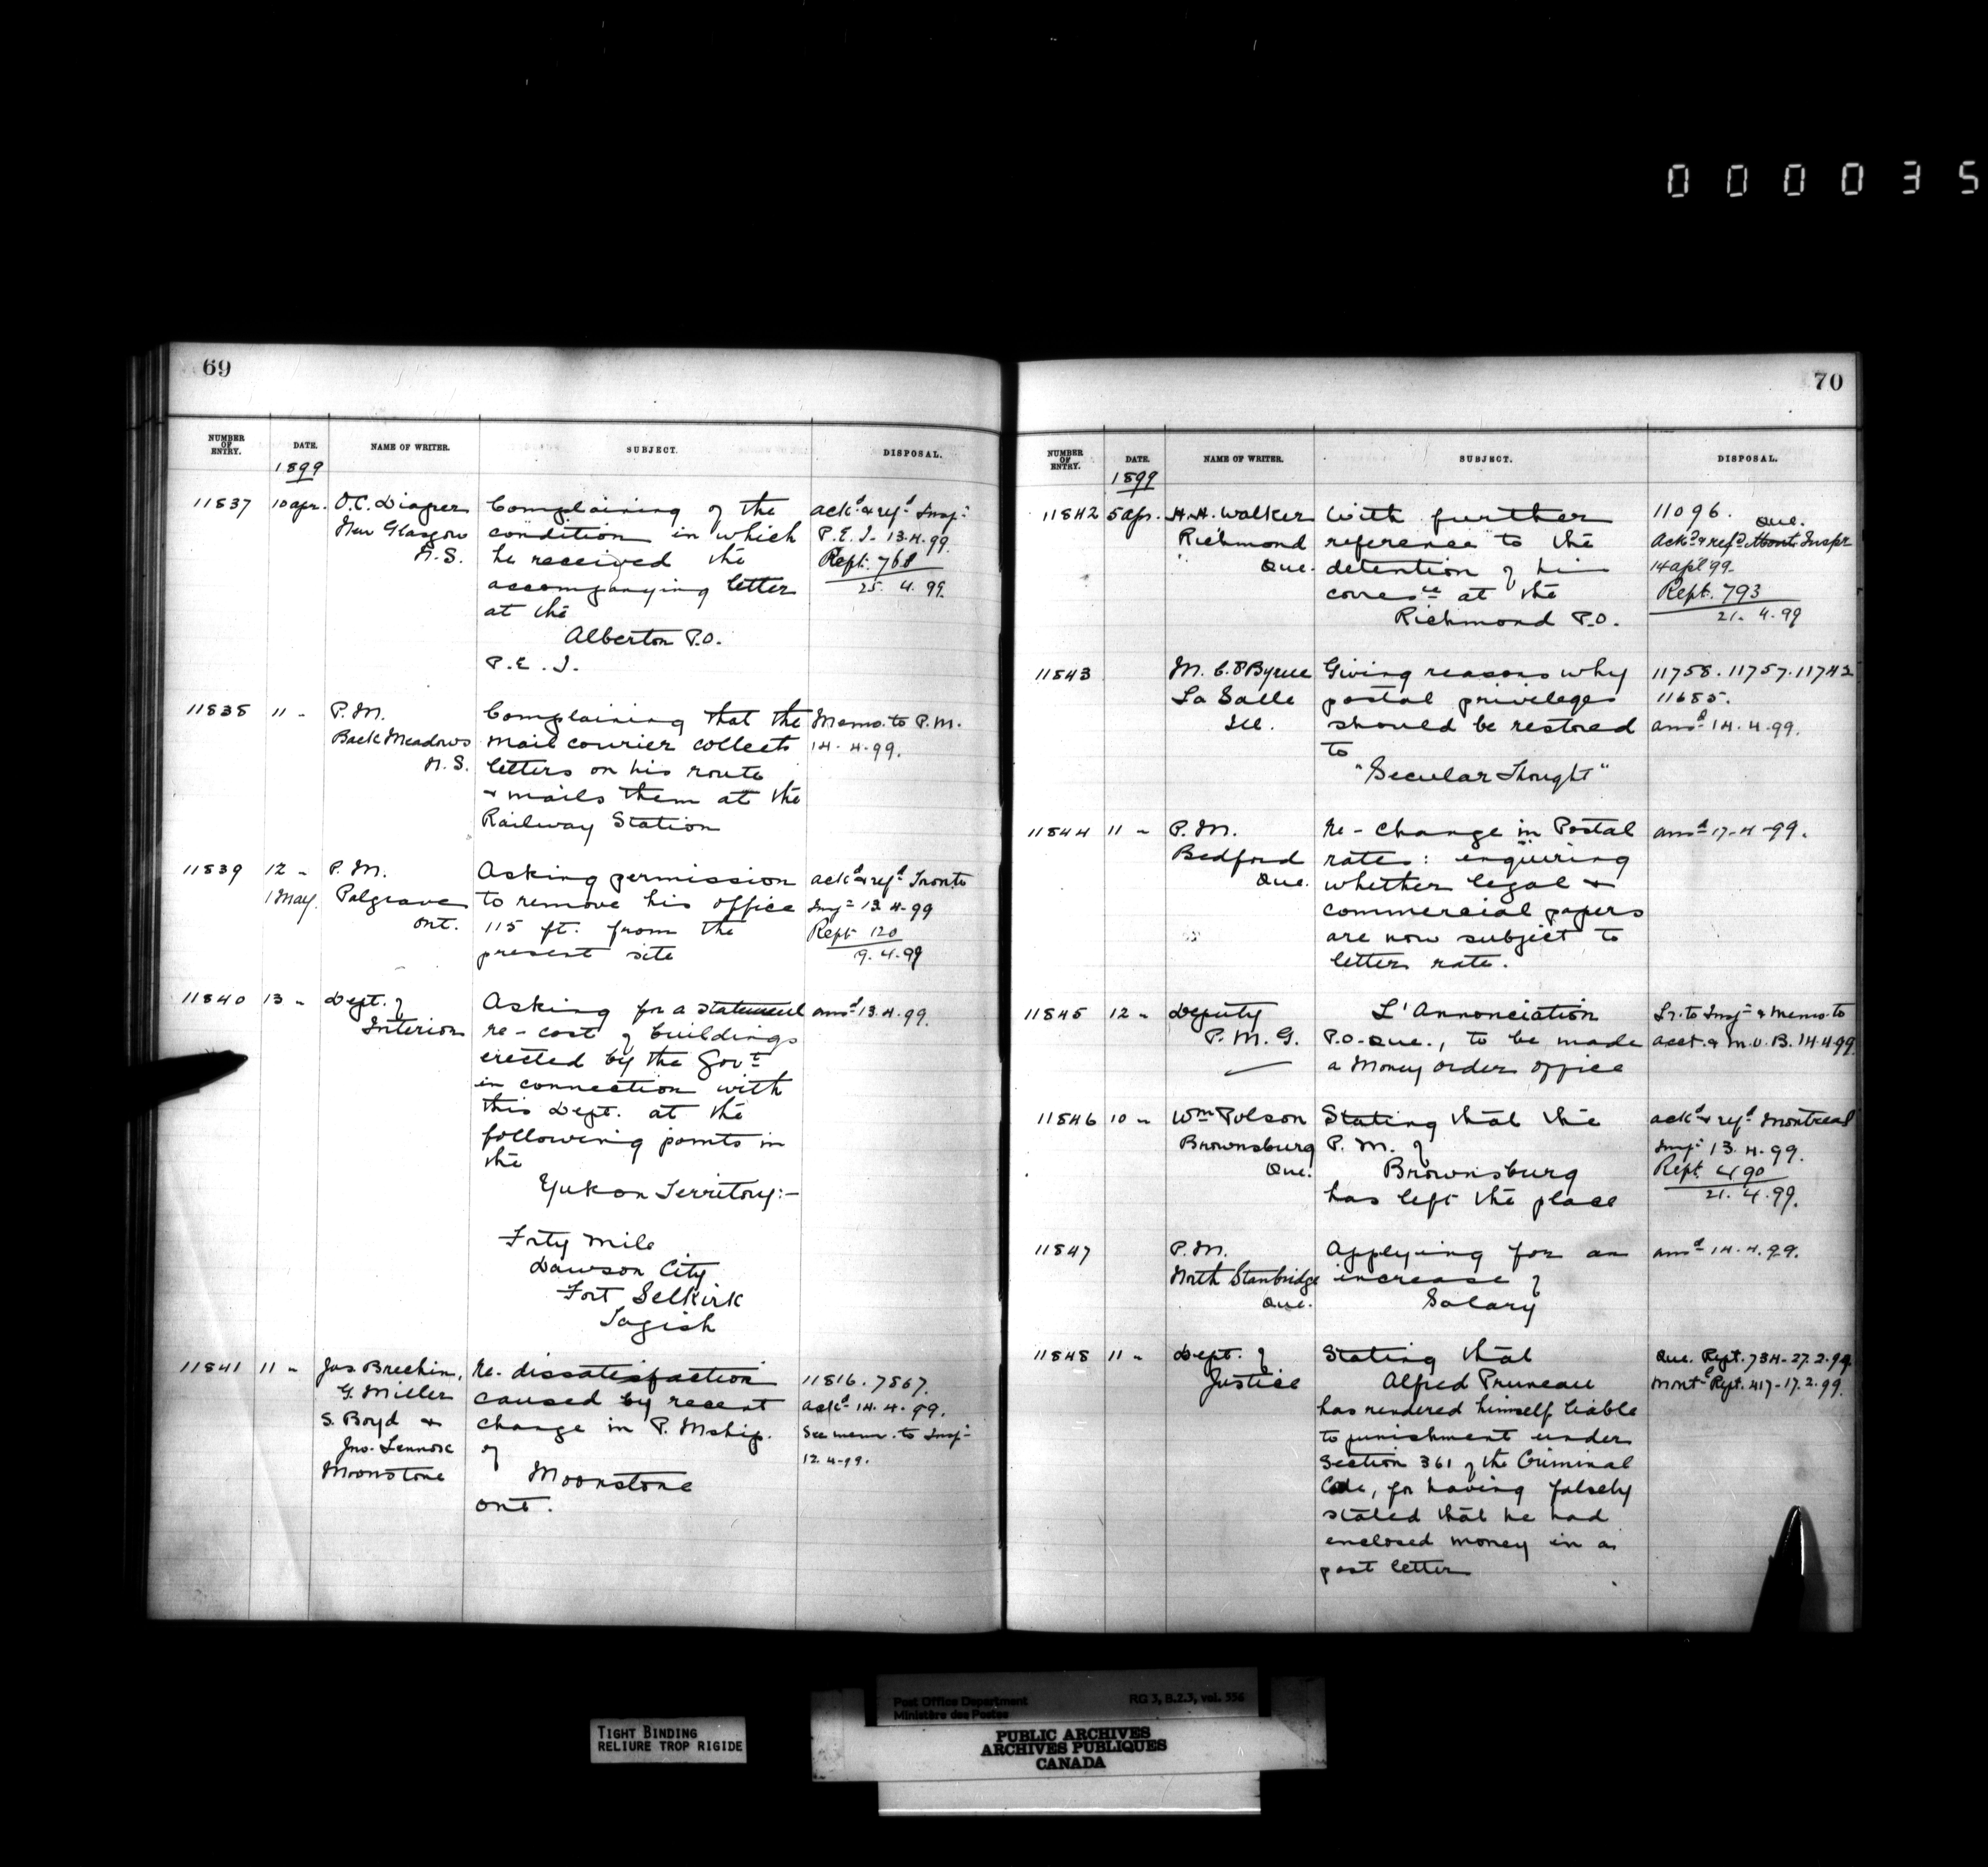 000035
69
NUMBER OF ENTRY. DATE. NAME OF WRITER. SUBJECT. DISPOSAL.
1899
11837 10 apr. O.C. Diaper Complaining of the ackd & refd Inspr
New Glasgow condition in which P.E.I. 13.4.99.
N.S. he received the Rept. 768
accompanying letter 25. 4. 99.
at the
Alberton P.O.
P.E.I.
11838 11 " P.M. Complaining that the Memo. to P.M.
Back Meadows mail courier collects 14.4.99.
N.S. letters on his route
& mails them at the
Railway Station
11839 12 " P.M. Asking permission ackd & refd Tronto
1 May. Palgrave to remove his office Inspr 13.4.99
Ont. 115 ft. from the Rept 120
present site 9.4.99
11840 13 " Dept. of Asking for a statement ansd 13.4.99.
Interior re- cost of buildings
erected by the Govt
in connection with
this Dept. at the
following points in
the
Yukon Territory:-
Forty Mile
Dawson City
Fort Selkirk
Tagish
11841 11 " Jas Brechin, Re- dissatisfaction 11816. 7867.
G. Miller caused by recent ackd 14.4.99.
S. Boyd & change in P. Mship. See memo. to Inspr
Jno. Lennox of 12.4.99.
Moonstone Moonstone
Ont.
70
NUMBER OF ENTRY. DATE. NAME OF WRITER. SUBJECT. DISPOSAL.
1899
11842 5 apr. H.H. Walker With further 11096.
Richmond reference to the Ackd & refd Mont Que. Inspr
Que. detention of his 14 apl 99.
correce at the Rept. 793
Richmond P.O. 21. 4.99
11843 M. C. O'Byrne Giving reasons why 11758. 11757. 11742
La Salle postal privileges 11685.
Ill. should be restored ansd 14.4.99.
to
"Secular Thought"
11844 11 " P.M. Re- change in Postal ansd 17-4-99.
Bedford rates: enquiring
Que. whether legal &
commercial papers
are now subject to
letter rate.
11845 12 " Deputy L'Annonciation Lr. to Inspr & Memo. to
P.M.G. P.O. Que., to be made acct. & M.O.B. 14.4.99.
a Money order office
11846 10 " Wm Polson Stating that the ackd & refd Montreal
Brownsburg P.M. of Inspr 13.4.99.
Que. Brownsburg Rept. 490
has left the place 21. 4.99.
11847 P.M. Applying for an ansd 14.4.99.
North Stanbridge increase of
Que. Salary
11848 11 " Dept. of Stating that Que. Rept. 734-27.2.99
Justice Alfred Pruneau Montl Rept. 417-17.2.99.
has rendered himself liable
to punishment under
Section 361 of the Criminal
Code, for having falsely
stated that he had
enclosed money in a
post letter
TIGHT BINDING
RELIURE TROP RIGIDE
Post Office Department RG 3, B.2.3, vol. 556
Ministère des Postes
PUBLIC ARCHIVES
ARCHIVES PUBLIQUES
CANADA